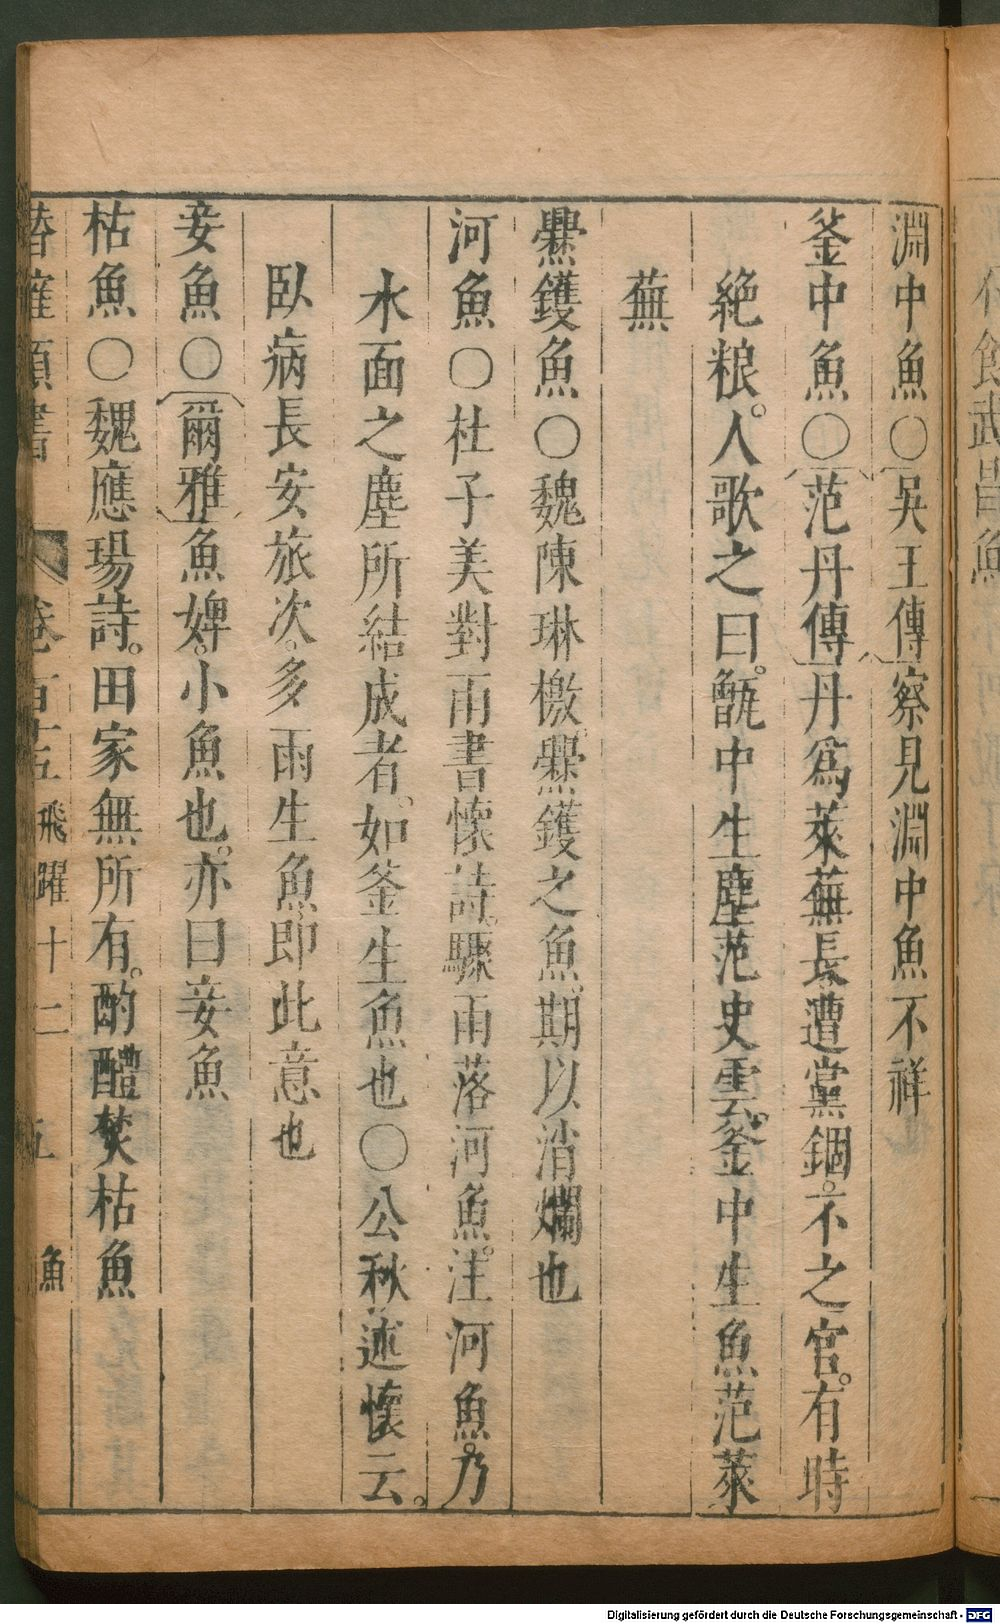 淵中魚〇吳王傳察見淵中魚不祥
釜中魚〇范丹傳丹爲萊蕪長遭黨錮。不之官。有時
絶粮。人歌之曰。甑中生塵范史雲。釜中生魚范萊
蕪
爨鑊魚〇魏陳琳檄。爨鑊之魚。期以消爛也
河魚〇杜子美對雨書懷詩。驟雨落河魚。注河魚。乃
水面之塵所結成者。如釜生魚也〇公秋述懷云。
臥病長安旅次。多雨生魚即此意也
妾魚〇爾雅魚婢。小魚也。亦曰妾魚
枯魚〇魏應瑒詩。田家無所有。酌醴焚枯魚
卷百十五 飛躍十二 五 魚
Digitalisierung gefördert durch die Deutsche Forschungsgemeinschaft - DFG